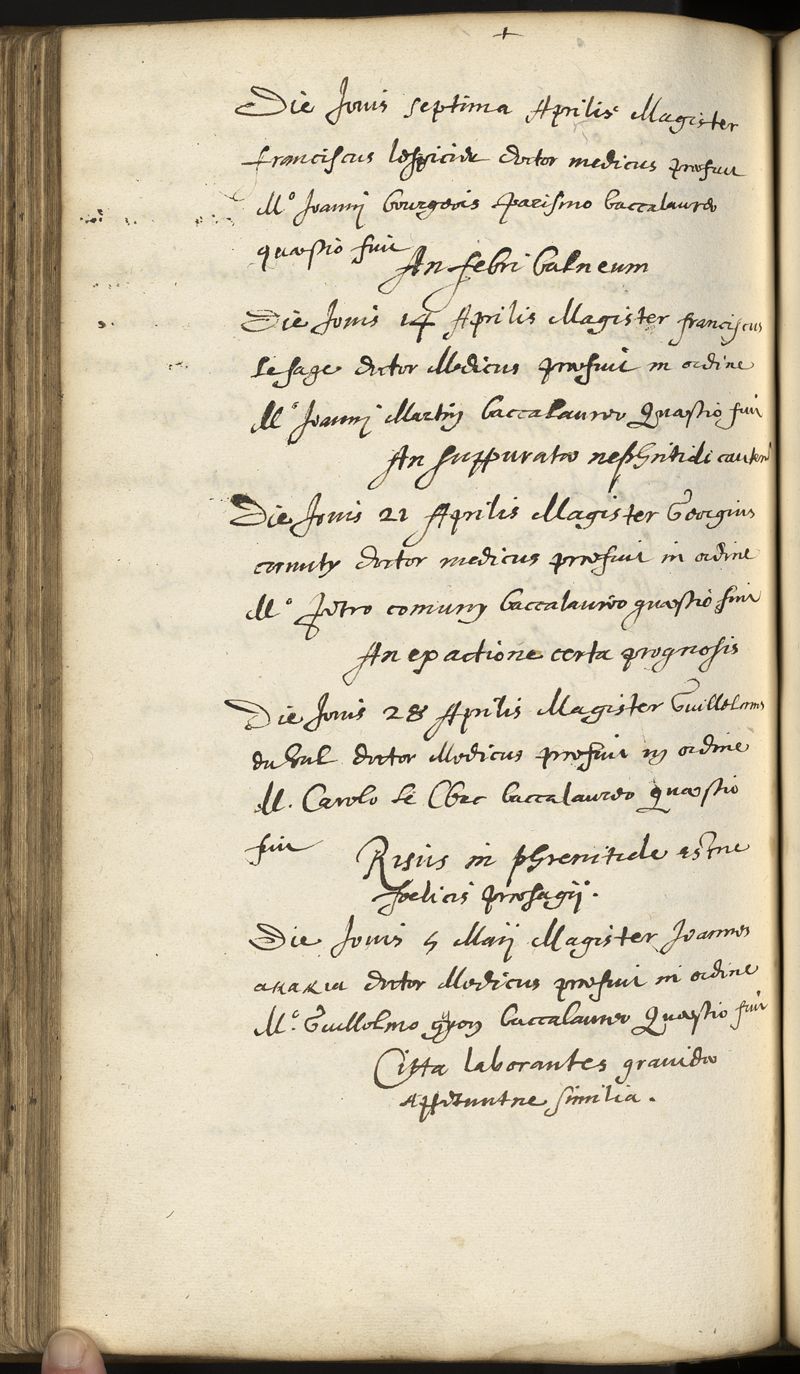 +
Die Jovis septima Aprilis Magister
franciscus doctor medicus præfuit
M.o Joanni bourgeois parisino baccalaureo
quæstio fuit
An febri balneum
Die Jovis 14 Aprilis Magister franciscus
le sage doctor Medicus præfuit in ordine
M.o Joanni Martin baccalaureo Quæstio fuit
An suppuratæ nephritidi
Die Jovis 21 Aprilis Magister Georgius
cornuty doctor medicus præfuit in ordine
M.o Petro baccalaureo quæstio fuit
An ex actione certa prognosis
Die Jovis 28 Aprilis Magister Guillelmus
du val doctor Medicus præfuit in ordine
M. Carolo le baccalaureo quæstio
fuit
Risus in phrenitide estne
foelicis præsagij.
Die Jovis 5 Maij Magister Joannes
akakia doctor Medicus præfuit in ordine
M.o Guillelmo baccalaureo Quæstio fuit
Citta laborantes gravidæ
appetuntne similia.